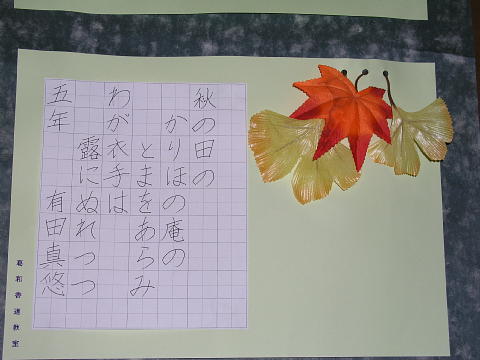 秋の田の
かりほの庵の
とまをあらみ
わが衣手は
露にぬれつつ
五年 有田真悠
葛和書道教室